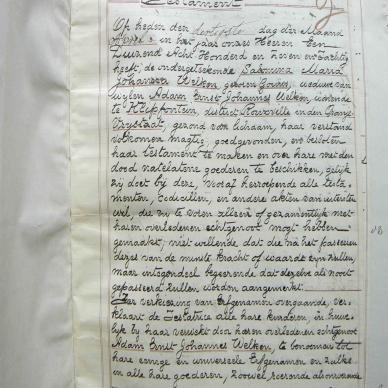 Testament
Op heden den dertigste dag der Maand
in het jaar onzes Heeren Een
Duizend Acht Honderd en Zeven en Tachtig
heeft, de ondergeteekende Salomina Maria
Johanna Welken, geboren weduwe van
wijlen Adam Ernst Johannes Welken, wonende
te Klipfontein, district Rouxville in den Oranje
Vrystaat, gezond van lichaam, haar verstand
volkomen magtig, goedgevonden, en besloten
haar testament te maken en over hare met den
dood natelatene goederen te beschikken, gelijk
zij doet bij deze, vooraf herroepende alle testa-
menten, codicillen, en andere akten van uitersten
wil, die zij te voren alleen of gezamentlijk met
haren overledenen echtgenoot mogt hebben
gemaakt; niet willende, dat die na het passeren
dezes van de minste kracht of waarde zijn zullen,
maar integendeel begeerende dat dezelve als nooit
gepasseerd zullen worden aangemerkt.
Ter verkiezing van Erfgenamen overgaande, ver-
klaart de Testatrice alle hare kinderen, in huwe-
lijk bij haar verwekt door haren overledenen echtgenoot
Adam Ernst Johannes Welken, te benoemen tot
hare eenige en universeele Erfgenamen en zulks
in alle hare goederen, zoowel roerende als onroerende